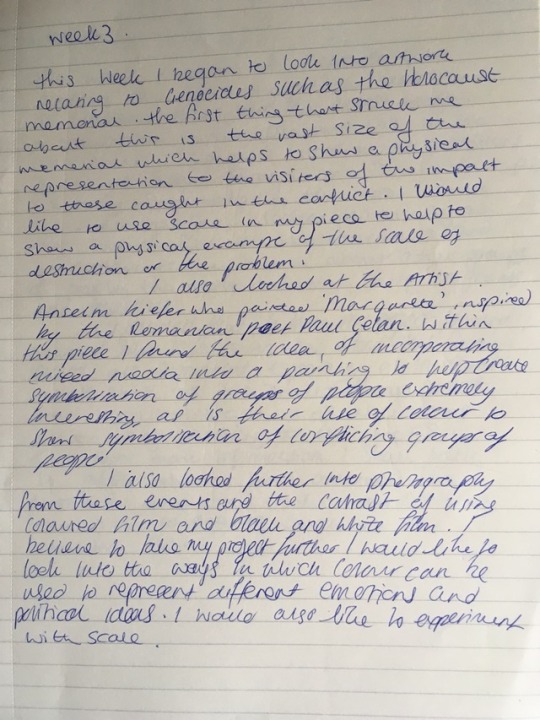 week 3.
this week I began to look into artwork
relating to Genocides such as the Holocaust
memorial. the first thing that struck me
about this is the vast size of the
memorial which helps to show a physical
representation to the visitors of the impact
to those caught in the conflict. I would
like to use scale in my piece to help to
show a physical example of the scale of
destruction or the problem.
I also looked at the Artist
Anselm Kiefer who painted 'Margarete', inspired
by the Romanian poet Paul Celan. Within
this piece I found the idea, of incorporating
mixed media into a painting to help create
symbolisation of groups of people extremely
Interesting, as is their use of colour to
show symbolisation of conflicting groups of
people
I also looked further into photography
from these events and the contrast of using
coloured film and black and white film. I
believe to take my project further I would like to
look into the ways in which colour can be
used to represent different emotions and
political ideas. I would also like to experiment
with scale.